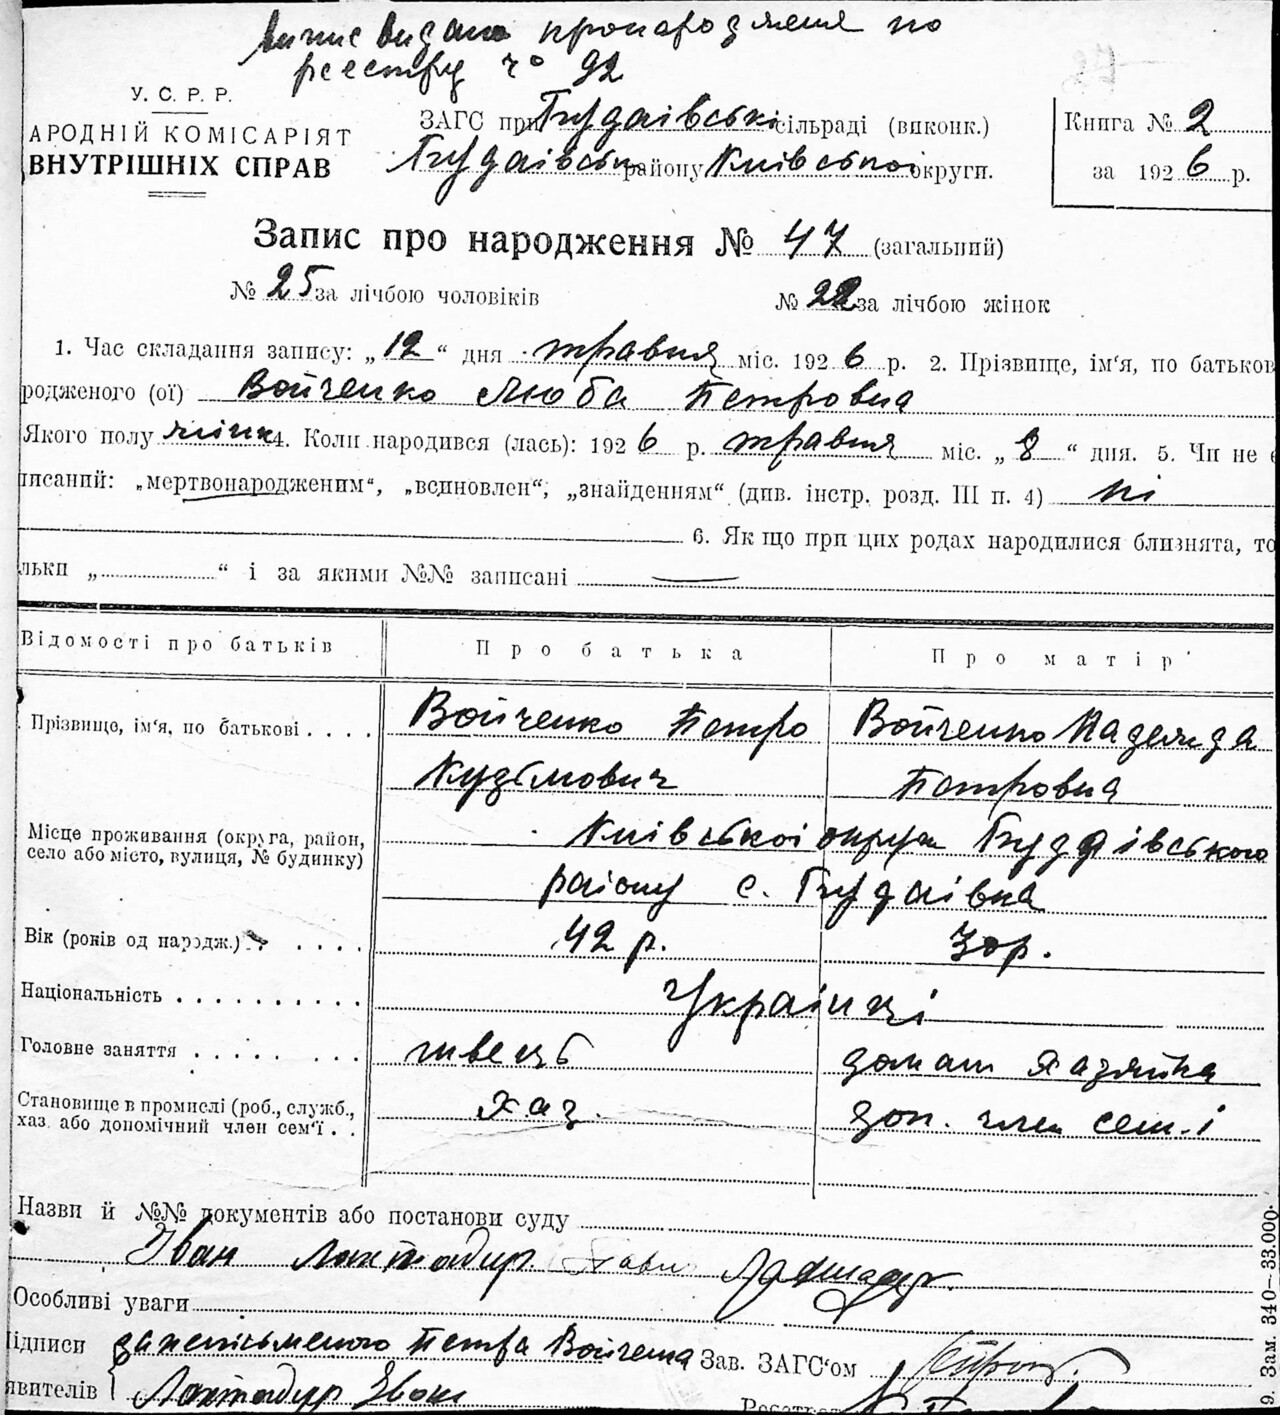 випис видана про народження по
реєстру № 92
У. С. Р. Р.
АРОДНІЙ КОМІСАРІЯТ
ВНУТРІШНІХ СПРАВ
ЗАГС при Будаівські сільраді (виконк.)
Будаівськ району Київської округи.
Книга № 2
за 1926 р.
Запис про народження № 47 (загальний)
№ 25 за лічбою чоловіків
№ 22 за лічбою жінок
1. Час складання запису: „12“ дня травня міс. 1926 р. 2. Прізвище, ім'я, по батьков
родженого (ої) Войченко Люба Петровна
Якого полу жінк 4. Коли народився (лась): 1926 р. травня міс. „8“ дня. 5. Чи не є
писаний: „мертвонародженим“, „всиновлен“, „знайденням“ (див. інстр. розд. III п. 4) ні
6. Як що при цих родах народилися близнята, то
льки „ “ і за якими №№ записані —
Відомості про батьків
Про батька
Про матір
Прізвище, ім'я, по батькові . . . .
Войченко Петро
Войченко Надежда
Кузьмович
Петровна
Місце проживання (округа, район,
село або місто, вулиця, № будинку)
Київської округи Будаівського
району с. Будаівка
Вік (років од народж.) . . . . .
42 р.
Національність . . . . . . . . . .
Украінці
Головне заняття . . . . . . . .
швець
домаш хазяйка
Становище в промислі (роб., служб.,
хаз. або допомічний член сем'ї . .
хаз.
доп. член сем.і
Назви й №№ документів або постанови суду
Іван
Особливі уваги
ідписи
Петра Войченка
Зав. ЗАГС'ом
явителів
Іван
9. Зам. 340—33.000.